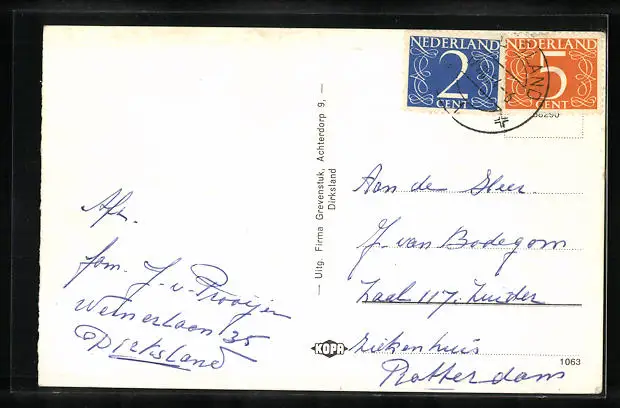 NEDERLAND
2
CENT
NEDERLAND
5
CENT
LAND
56290
— Uitg. Firma Grevenstuk, Achterdorp 9, —
Dirksland
Afz.
fam. J. v. Prooijen
35
Dirksland
Aan de Heer.
J. van Bodegom
Zaal 117. Zuider
Ziekenhuis
Rotterdam
KOPR
1063